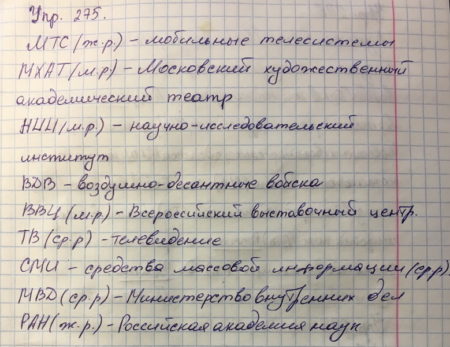 Упр. 275.
МТС (ж.р) – мобильные телесистемы
МХАТ (м.р) – Московский художественный
академический театр
НИИ (м.р.) – научно-исследовательский
институт
ВДВ – воздушно-десантные войска
ВВЦ (м.р) – Всероссийский выставочный центр.
ТВ (ср.р) – телевидение
СМИ – средства массовой информации (ср.р)
МВД (ср.р) – Министерство внутренних дел
РАН (ж.р.) – Российская академия наук